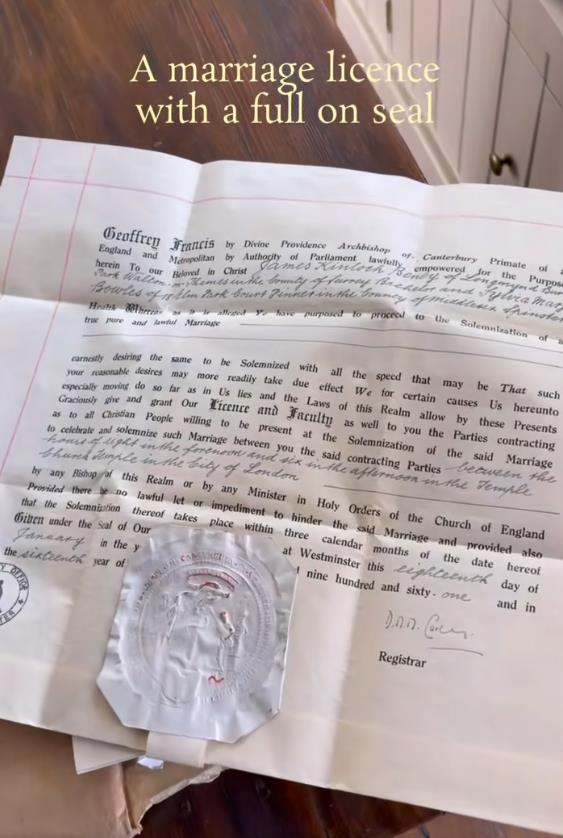 A marriage licence
with a full on seal
Geoffrey Francis by Divine Providence Archbishop of Canterbury Primate of
England and Metropolitan by Authority of Parliament lawfully empowered for the
herein To our Beloved in Christ James Kinloch of Longmynd
Park Walton-on-Thames in the County of Surrey Bachelor and Sylvia
Bowles of Elm Park Court Pinner in the County of Middlesex Spinster
Health Whereas as it is alleged Ye have purposed to proceed to the Solemnization of a
true pure and lawful Marriage
earnestly desiring the same to be Solemnized with all the speed that may be That such
your reasonable desires may more readily take due effect We for certain causes Us hereunto
especially moving do so far as in Us lies and the Laws of this Realm allow by these Presents
Graciously give and grant Our Licence and Faculty as well to you the Parties contracting
as to all Christian People willing to be present at the Solemnization of the said Marriage
to celebrate and solemnize such Marriage between you the said contracting Parties between the
hours of eight in the forenoon and six in the afternoon in the Temple
Church Temple in the City of London
by any Bishop of this Realm or by any Minister in Holy Orders of the Church of England
Provided there be no lawful let or impediment to hinder the said Marriage and provided also
that the Solemnization thereof takes place within three calendar months of the date hereof
Given under the Seal of Our at Westminster this eighteenth day of
January in the y nine hundred and sixty-one and in
the sixteenth year of
Registrar